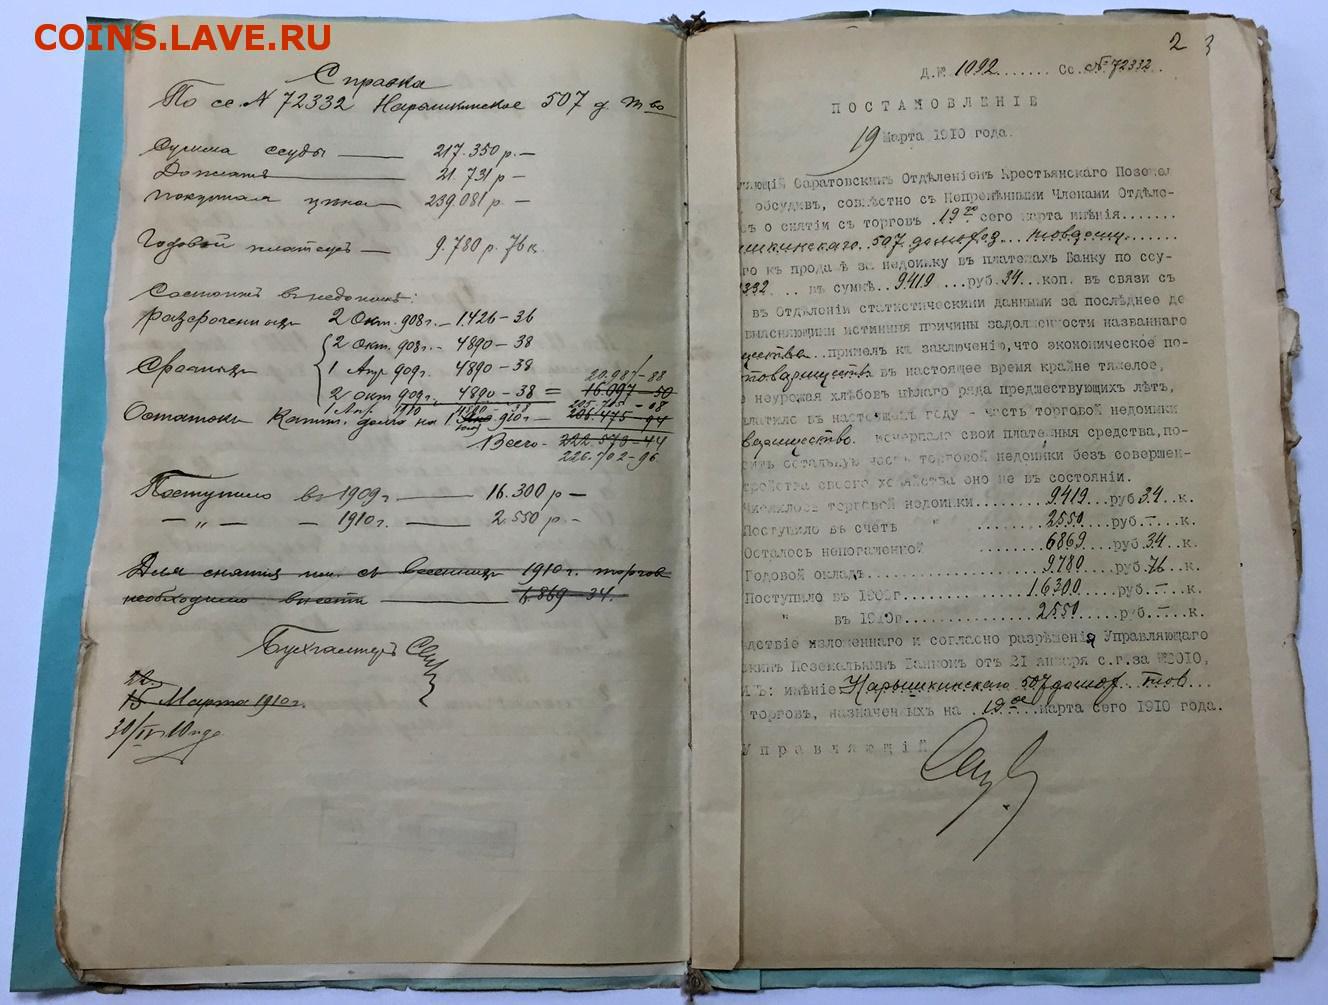 COINS.LAVE.RU
Справка
По сс. № 72332 Нарышкинское 507 д. т во
Сумма ссуды — 217.350 р. —
Доплата — 21.731 р —
покупная цѣна — 239.081 р. —
Годовой платежъ — 9.780 р. 76 к.
Состоитъ въ недоимкѣ:
разсроченныи 2 Окт. 908 г. — 1.426 - 36
2 Окт. 908 г. — 4890 - 38
Срочныи 1 Апр. 909 г. 4890 - 38 20.987 - 88
2 окт 909 г. 4890 - 38 = 16.097 - 50
1 Апр. 1910 4890 38 205.715 - 08
Остатокъ Капит. долга на 1 910 г. — 206.475 - 94
Всего - 222.573 - 44
226.702 - 96
Поступило въ 1909 г — 16.300 р —
— „ — — 1910 г. — 2.550 р —
Для снятія им. съ весеннихъ 1910 г. торговъ
необходимо внести — 6.869 - 34.
Бухгалтеръ
15 Марта 1910 г.
30/IV 10 года
2 3
Д.№ 1092....... Сс. № 72332..
ПОСТАНОВЛЕНІЕ
19 Марта 1910 года.
ляющій Саратовскимъ Отдѣленіемъ Крестьянскаго Позе
обсудивъ, совмѣстно съ Непремѣнными Членами Отдѣле-
ъ о снятіи съ торговъ .19го сего марта имѣнія.......
шкинскаго 507 домохоз... товдещи......
го къ продажѣ за недоимку въ платежахъ Банку по ссу-
332 ... въ суммѣ..9419....руб.34.коп. въ связи съ
въ Отдѣленіи статистическими данными за послѣднее де
выясняющими истинныя причины задолженности названнаго
щества..пришелъ къ заключенію,что экономическое по-
товарищества въ настоящее время крайне тяжелое,
е неурожая хлѣбовъ цѣлаго ряда предшествующихъ лѣтъ,
латило въ настоящемъ году - часть торговой недоимки
варищество. исчерпало свои платежныя средства,по-
сить остальную часть торговой недоимки безъ совершен-
тройства своего хозяйства оно не въ состояніи.
Числилось торговой недоимки......9419...руб 34..к.
Поступило въ счетъ " ......2550...руб.—..к.
Осталось непогашенной ........6869....руб.34..к.
Годовой окладъ..............9780...руб.76..к.
Поступило въ 1909г..............16300....руб.—..к.
" въ 1910г..............2550....руб.—..к.
ѣдствіе изложеннаго и согласно разрѣшенія Управляющаго
скимъ Поземельнымъ Банкомъ отъ 21 января с.г.за №2010,
Л.Ъ: имѣніе Нарышкинскаго 507 домох.. тов
торговъ, назначенныхъ на ..19ое...марта сего 1910 года.
Управляющій